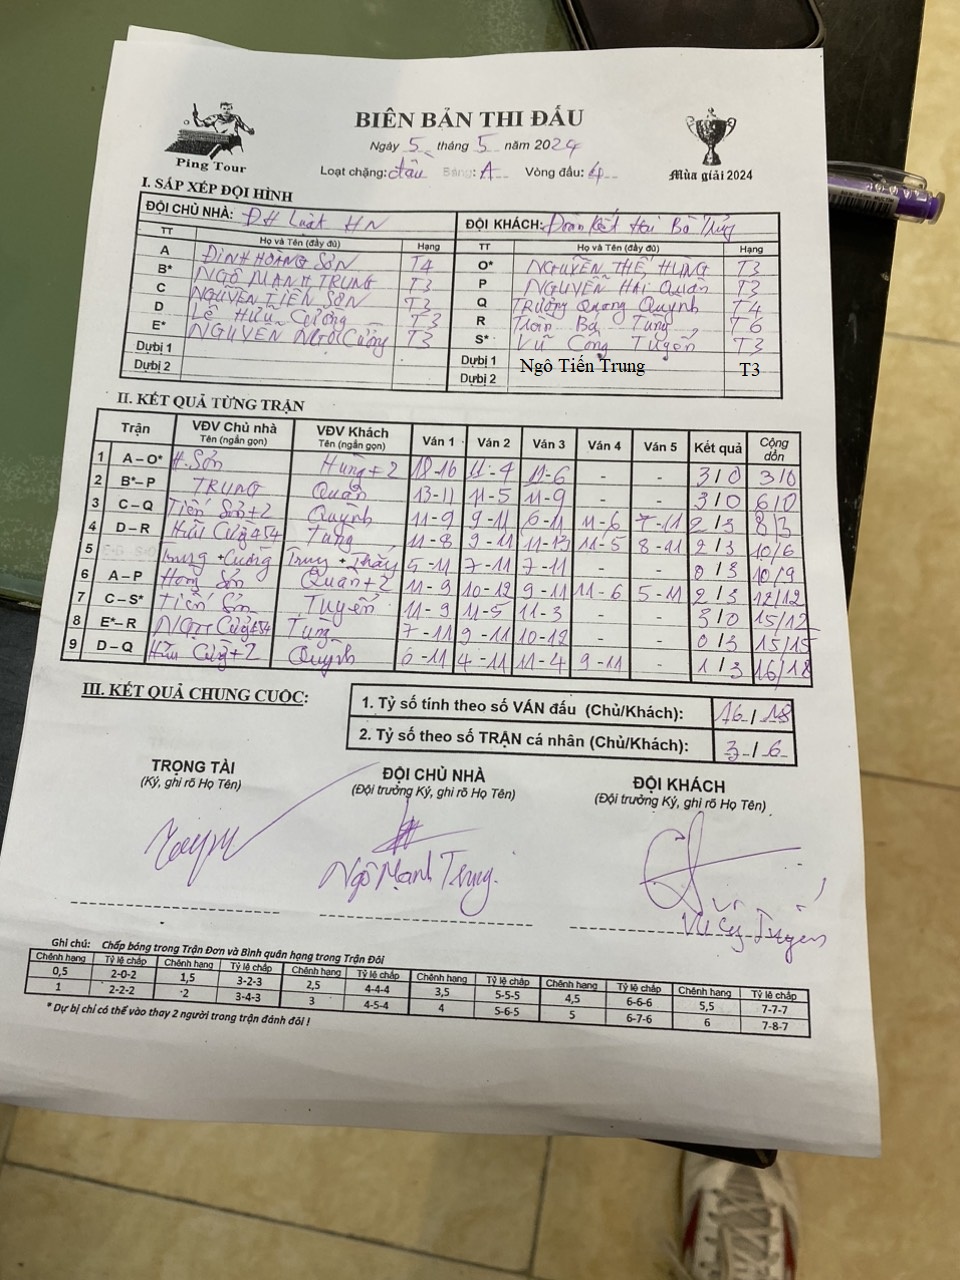 BIÊN BẢN THI ĐẤU
Ping Tour
Ngày 5 tháng 5 năm 2024
Loại chặng: đấu Bảng: A Vòng đấu: 4
Mùa giải 2024
I. SẮP XẾP ĐỘI HÌNH
ĐỘI CHỦ NHÀ: ĐH Luật HN ĐỘI KHÁCH: Đoàn Kết Hai Bà Trưng
TT Họ và Tên (đầy đủ) Hạng TT Họ và Tên (đầy đủ) Hạng
A ĐINH HOÀNG SƠN T4 O* NGUYỄN THẾ HÙNG T3
B* NGÔ MẠNH TRUNG T3 P NGUYỄN HẢI QUÂN T3
C NGUYỄN TIẾN SƠN T3 Q Trương Quang Quỳnh T4
D Lê Hữu Cường T3 R Trần Bá Tùng T6
E* NGUYỄN NGỌC Cường T3 S* Vũ Công Tuyển T3
Dự bị 1 Dự bị 1 Ngô Tiến Trung T3
Dự bị 2 Dự bị 2
II. KẾT QUẢ TỪNG TRẬN
Trận VĐV Chủ nhà Tên (ngắn gọn) VĐV Khách Tên (ngắn gọn) Ván 1 Ván 2 Ván 3 Ván 4 Ván 5 Kết quả Cộng dồn
1 A – O* H.Sơn Hùng+2 18-16 11-4 11-6 - - 3/0 3/0
2 B*– P TRUNG Quân 13-11 11-5 11-9 - - 3/0 6/0
3 C – Q Tiến Sơn+2 Quỳnh 11-9 9-11 6-11 11-6 7-11 2/3 8/3
4 D – R Hữu Cường 454 Tùng 11-8 9-11 11-13 11-5 8-11 2/3 10/6
5 Trung + Cường Trung + 5-11 7-11 7-11 - - 0/3 10/9
6 A – P Hoàng Sơn Quân+2 11-9 10-12 9-11 11-6 5-11 2/3 12/12
7 C – S* Tiến Sơn Tuyển 11-9 11-5 11-3 - - 3/0 15/12
8 E*– R Ngọc Cường 454 Tùng 7-11 9-11 10-12 - - 0/3 15/15
9 D – Q Hữu Cường+2 Quỳnh 6-11 4-11 11-4 9-11 - 1/3 16/18
III. KẾT QUẢ CHUNG CUỘC:
1. Tỷ số tính theo số VÁN đấu (Chủ/Khách): 16 / 18
2. Tỷ số theo số TRẬN cá nhân (Chủ/Khách): 3 / 6
TRỌNG TÀI ĐỘI CHỦ NHÀ ĐỘI KHÁCH
(Ký, ghi rõ Họ Tên) (Đội trưởng Ký, ghi rõ Họ Tên) (Đội trưởng Ký, ghi rõ Họ Tên)
Ngô Mạnh Trung
Ghi chú: Chấp bóng trong Trận Đơn và Bình quân hạng trong Trận Đôi
Chênh hạng Tỷ lệ chấp Chênh hạng Tỷ lệ chấp Chênh hạng Tỷ lệ chấp Chênh hạng Tỷ lệ chấp Chênh hạng Tỷ lệ chấp Chênh hạng Tỷ lệ chấp
0,5 2-0-2 1,5 3-2-3 2,5 4-4-4 3,5 5-5-5 4,5 6-6-6 5,5 7-7-7
1 2-2-2 2 3-4-3 3 4-5-4 4 5-6-5 5 6-7-6 6 7-8-7
* Dự bị chỉ có thể vào thay 2 người trong trận đánh đôi !